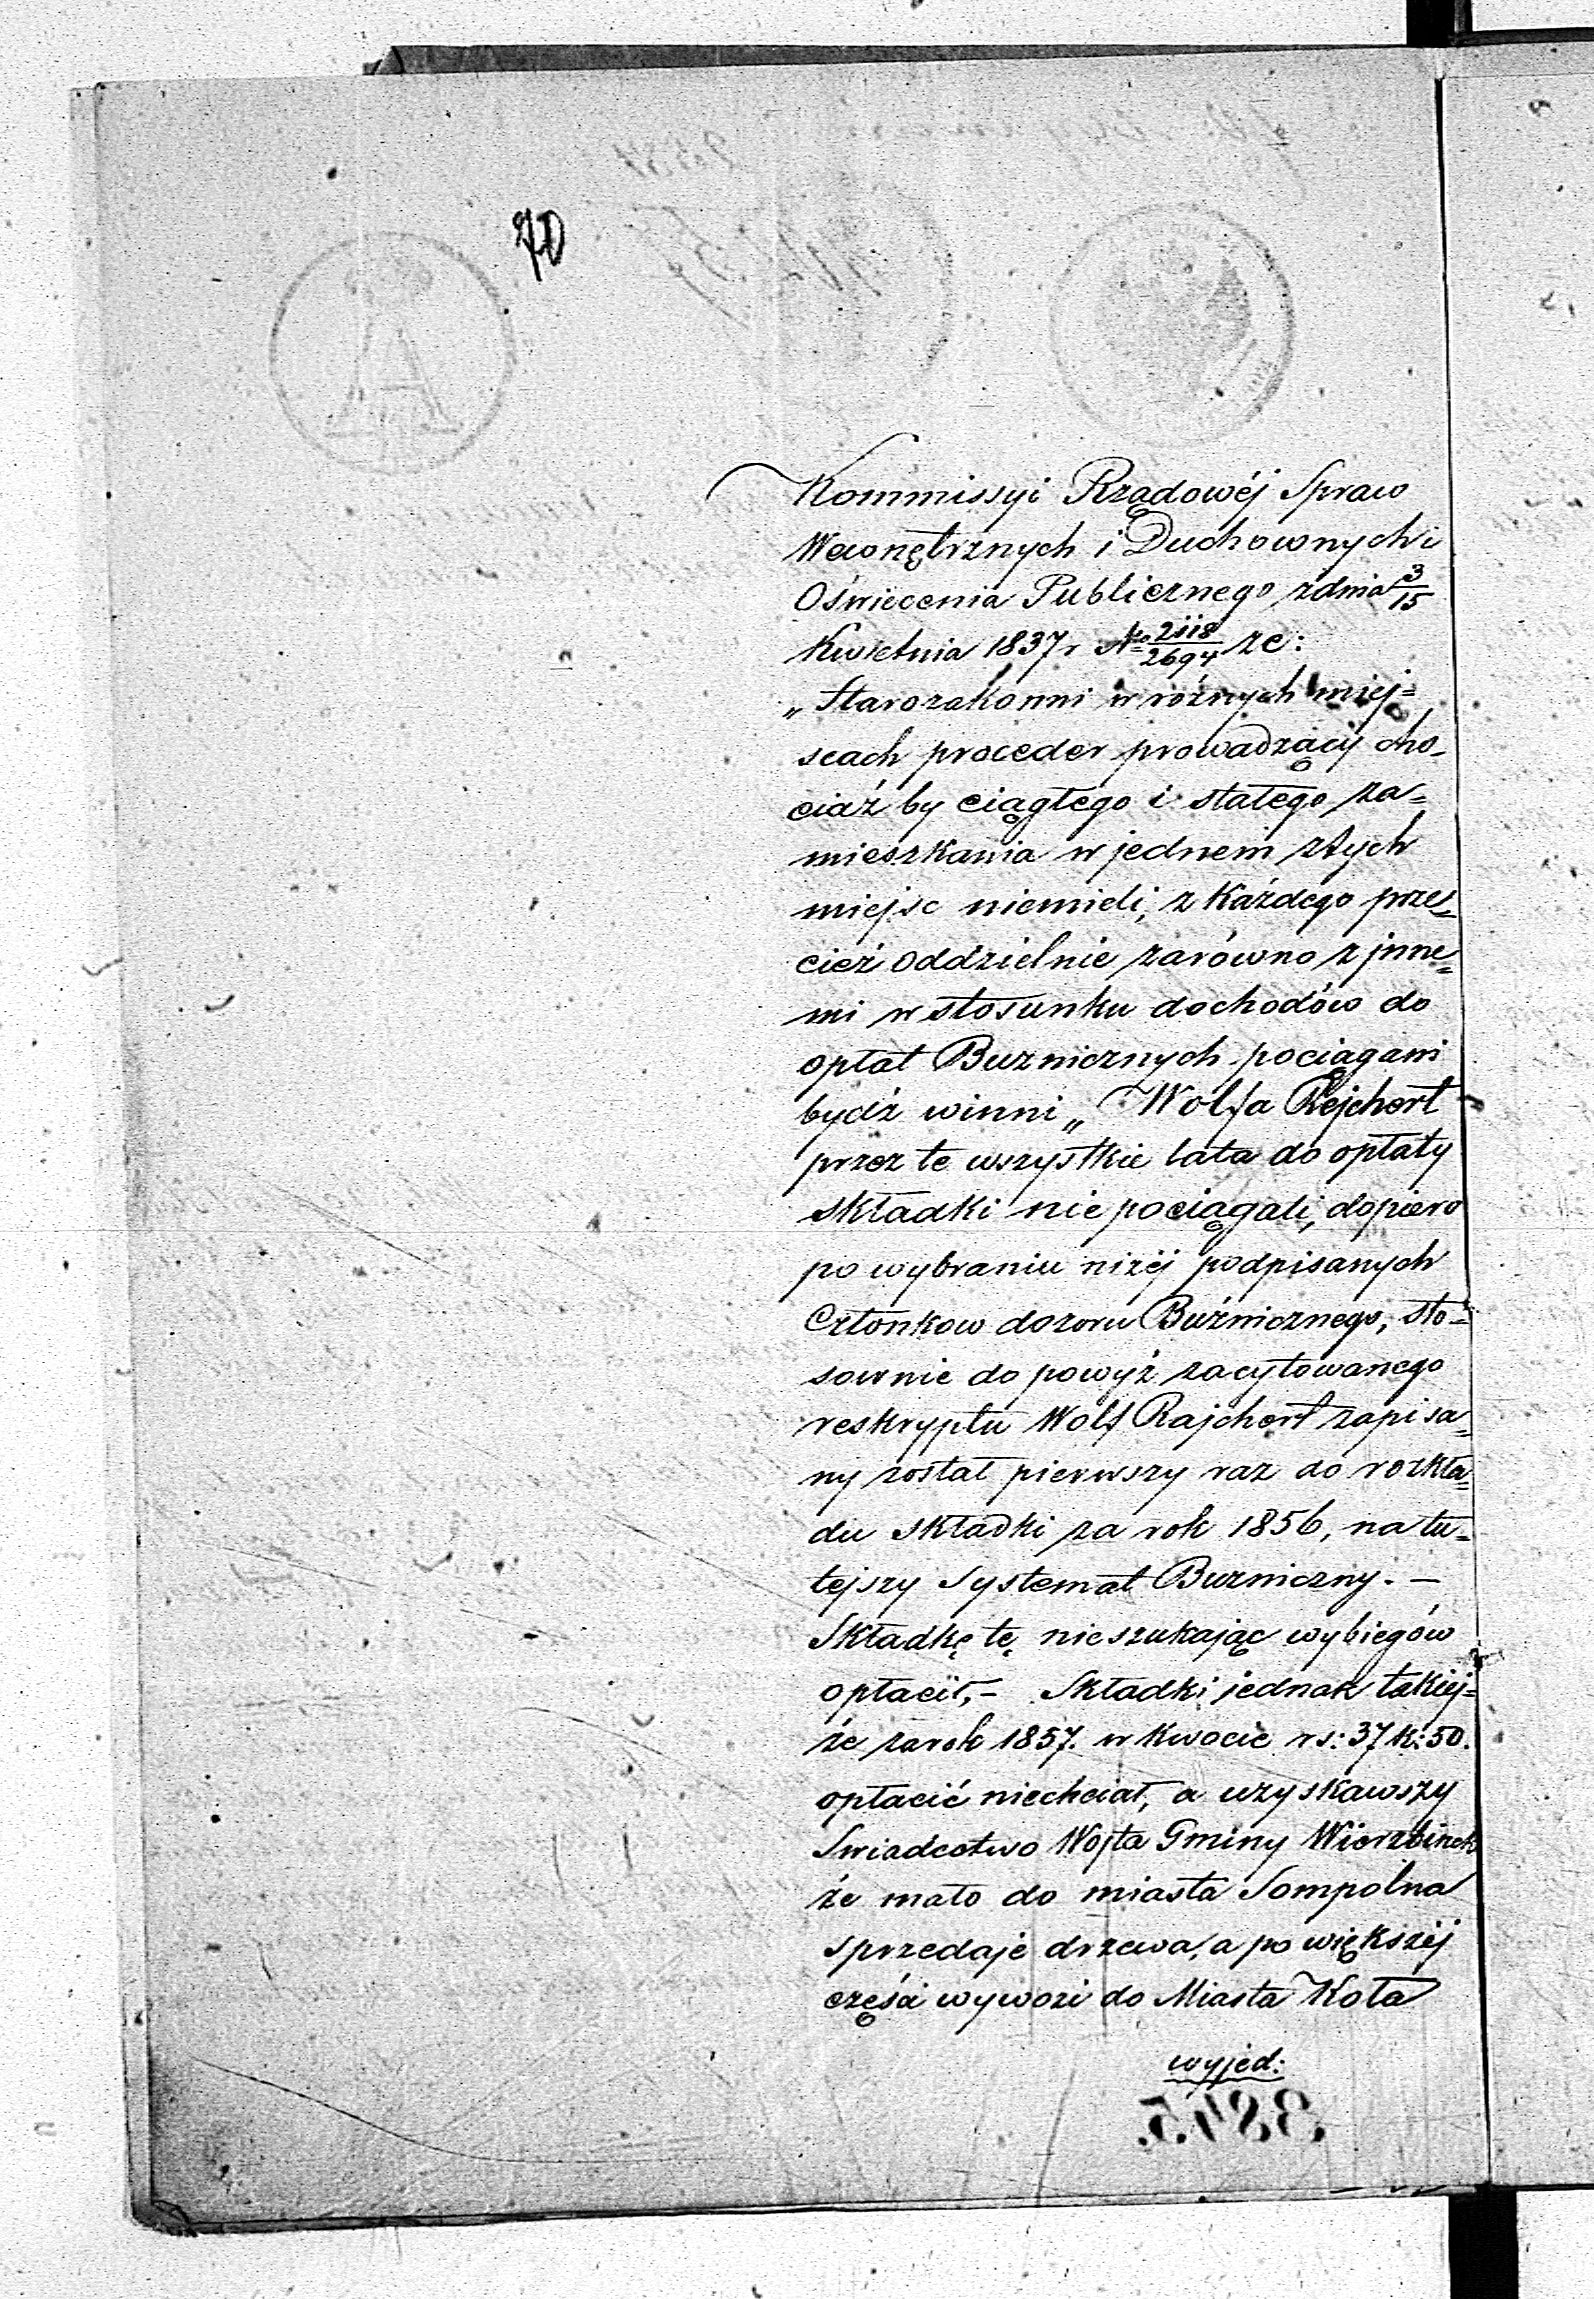 70
Kommissyi Rządowéj Spraw
Wewnętrznych i Duchownych i
Oświecenia Publicznego z dnia 3/15
Kwietnia 1837 r № 2118/2694 że:
„Starozakonni w różnych miej=
scach proceder prowadzący cho-
ciaż by ciągłego i stałego za=
mieszkania w jednem z tych
miejsc niemieli, z każdego prze=
cież oddzielnie zarówno z jnne=
mi w stosunku dochodów do
opłat Buznicznych pociągani
bydź winni„ Wolfa Rejchert
przez te wszystkie lata do opłaty
składki nie pociągali, dopiero
po wybraniu niżéj podpisanych
Członkow dozoru Buźnicznego, sto=
sownie do powyż zacytowanego
reskryptu Wolf Rajchert zapisa=
ny został pierwszy raz do rozkła=
du składki za rok 1856, na tu=
tejszy Systemat Buzniczny. —
Składkę tę nieszukając wybiegów
opłacił, — Składki jednak takiej=
że za rok 1857. w kwocie rs: 37 k: 50.
opłacić niechciał, a uzyskawszy
Swiadectwo Wojta Gminy Wierzbinek
że mało do miasta Sompolna
sprzedaje drzewa, a po większéj
części wywozi do Miasta Koła
wyjed:
3845.